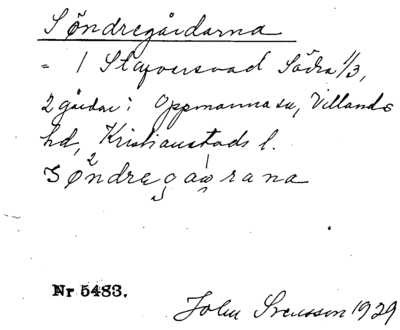 Söndregårdarna
= 1 Staversvad Södra 1/3,
2 gårdar i Oppmanna sn, Villands
hd, Kristianstads l.
Söndregårana
Nr 5483.
John Svensson 1929